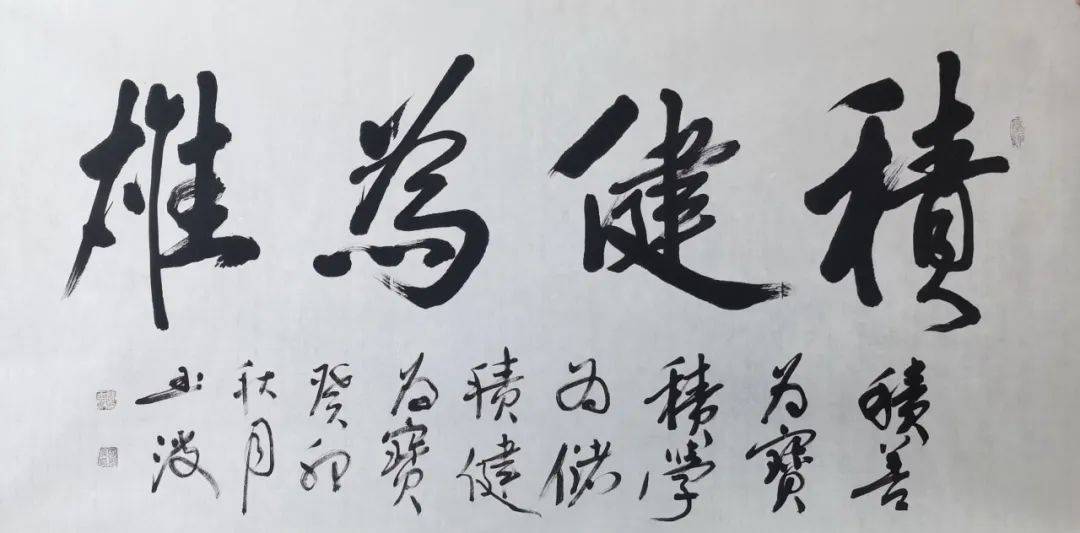 積健為雄
積善
为寶
積學
为儲
積健
为寶
癸卯
秋月
玉波